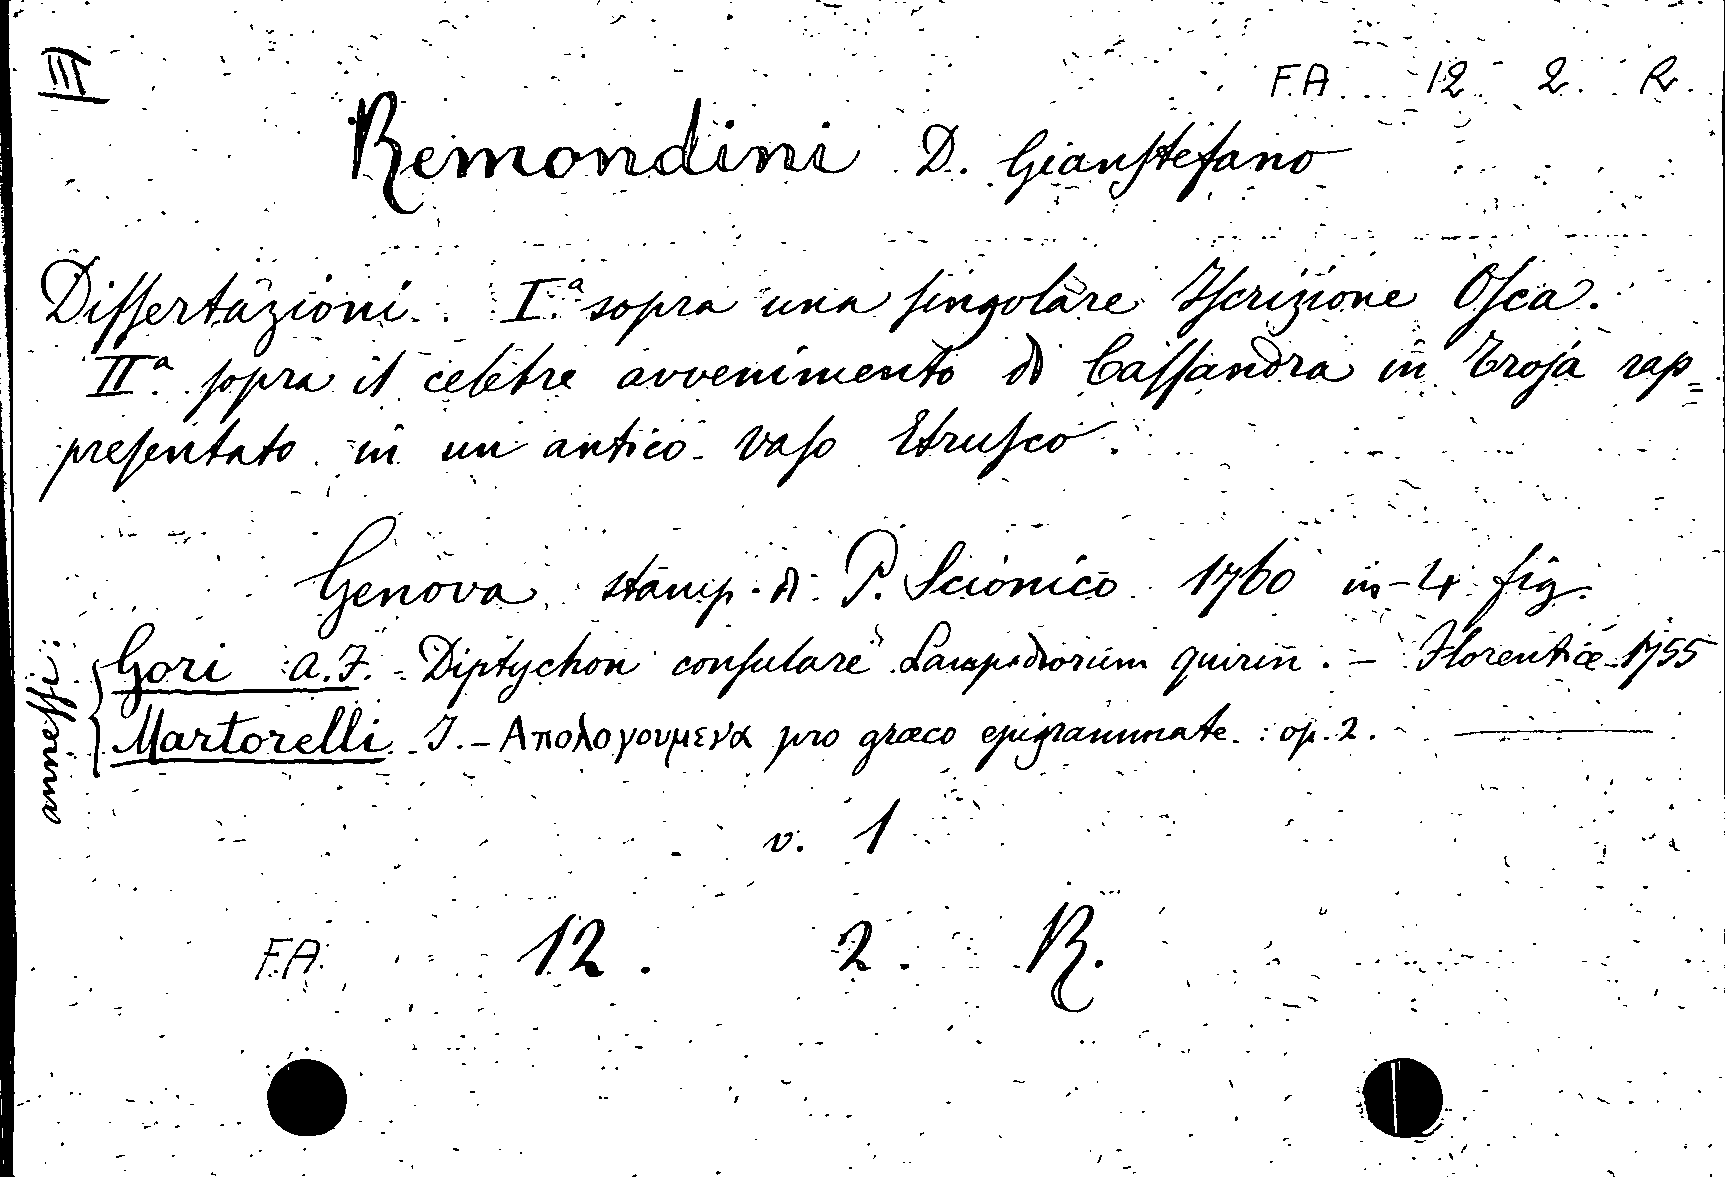 III
F.A. 12 2. R.
Remondini D. Gianstefano
Dissertazioni. I.ª sopra una singolare Iscrizione Osca.
IIª. sopra il celebre avvenimento di Cassandra in Troja rap=
presentato in un antico vaso Etrusco.
Genova stamp. di P. Scionico 1760 in-4 fig.
annessi:
Gori A. F. - Diptychon consulare Lampadiorum quirin. - Florentiae 1755
Martorelli J. - Απολογουμενα pro graeco epigrammate. op. 2. ———
v. 1
F.A. 12. 2. R.